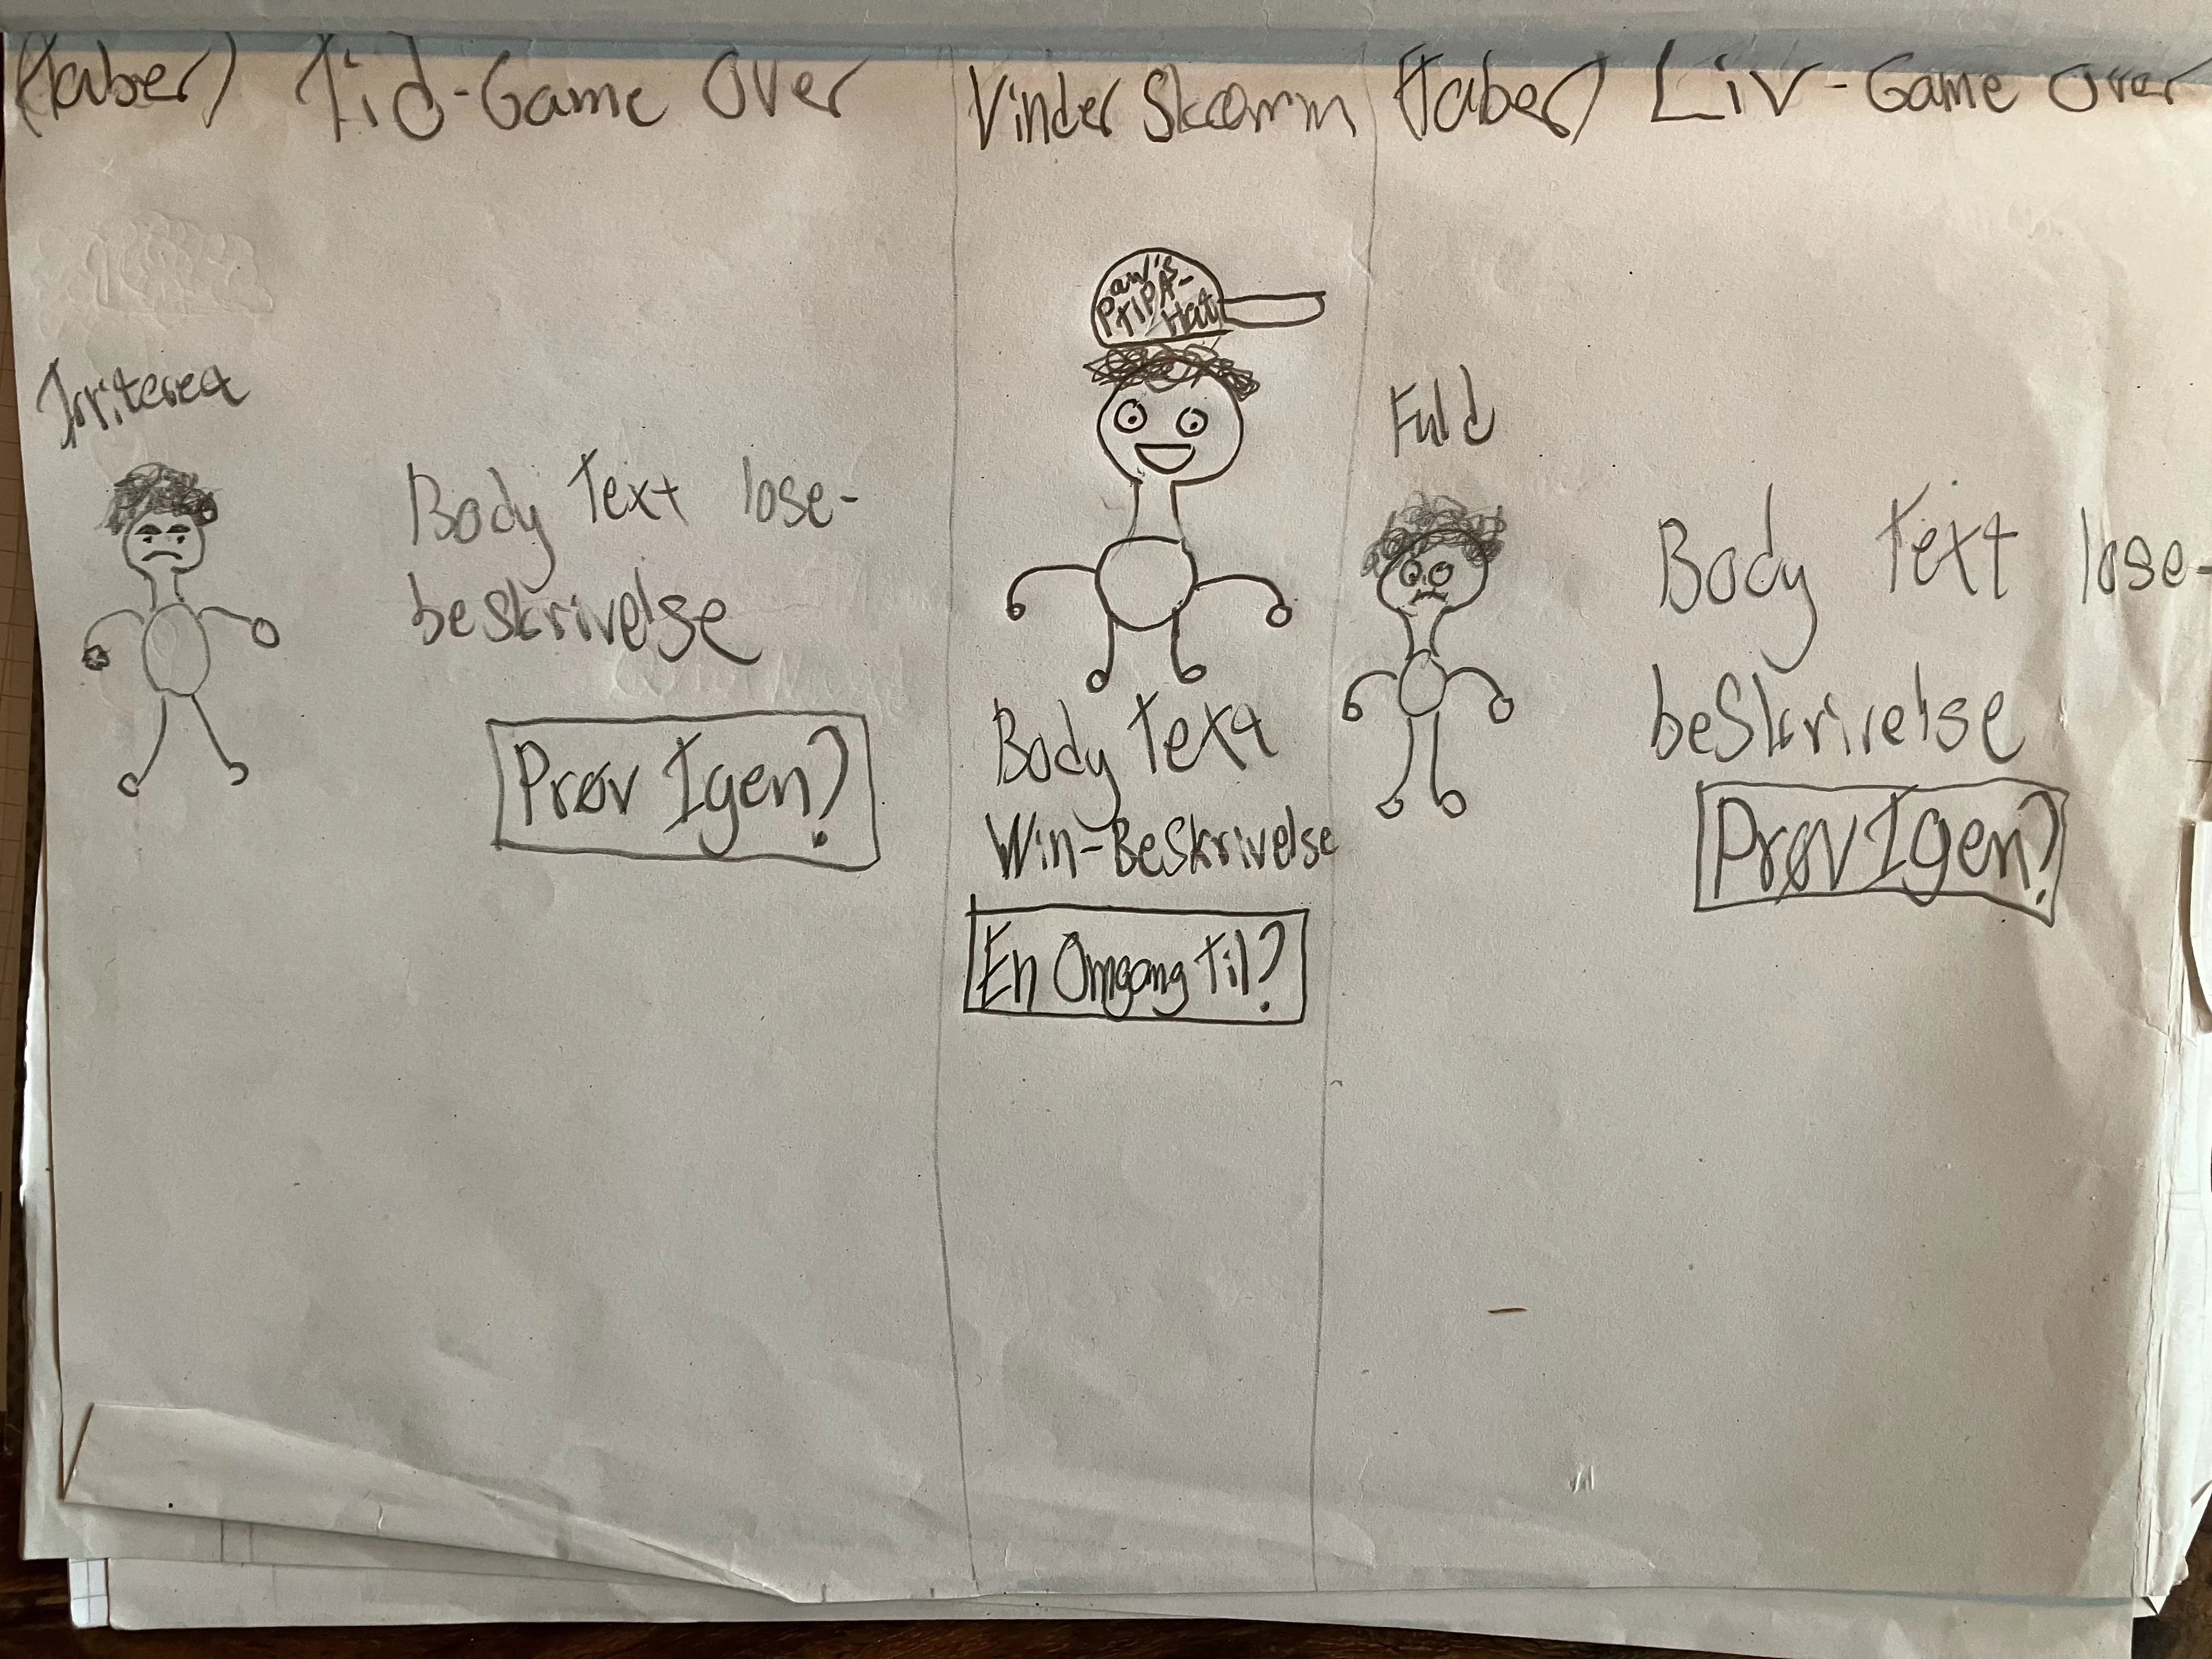 (Taber) Tid-Game Over
Irriterea
Body Text lose-
beskrivelse
Prøv Igen?
Vinder Skærm
Hat
Body Text
Win-Beskrivelse
En Omgang Til?
(Taber) Liv-Game Over
Fuld
Body Text lose-
beskrivelse
Prøv Igen?